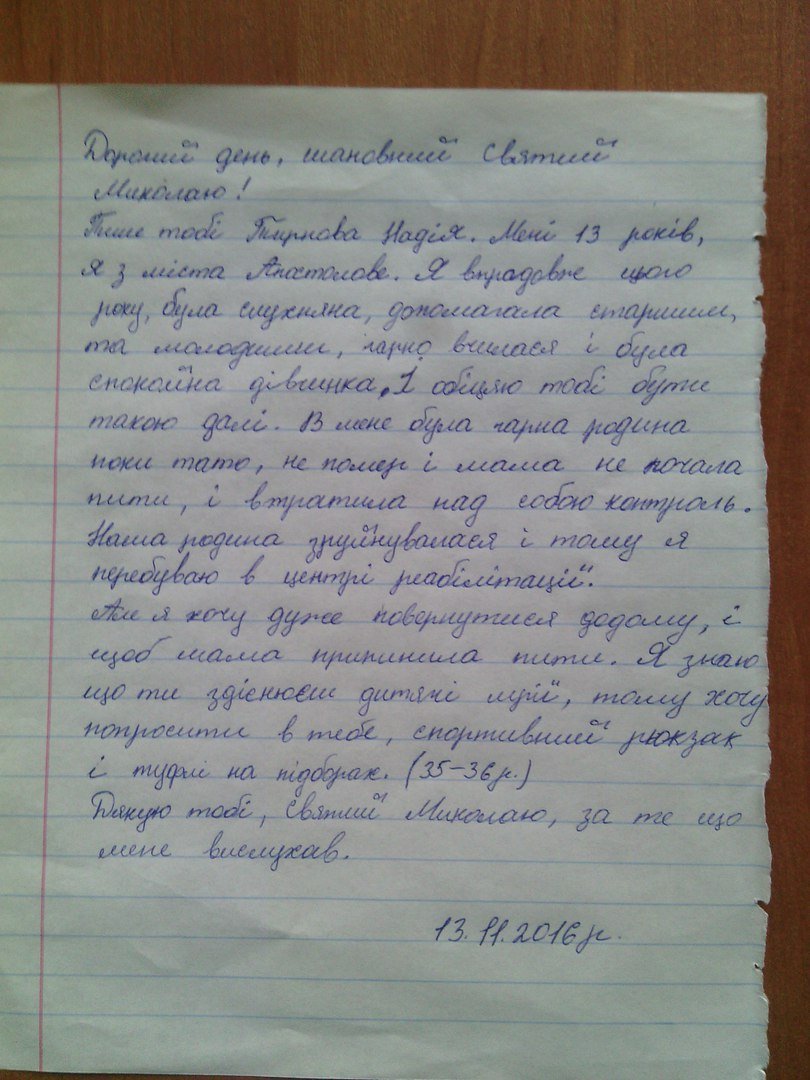 Дорогий день, шановний Святий
Миколаю!
Пише тобі Тирнова Надія. Мені 13 років,
я з міста Апостолове. Я впрадовж цього
року, була слухняна, допомагала старшим,
та молодшим, гарно вчилася і була
спокойна дівчинка. І обіцяю тобі бути
такою далі. В мене була гарна родина
поки тато, не помер і мама не почала
пити, і втратила над собою контроль.
Наша родина зруйнувалася і тому я
перебуваю в центрі реабілітації.
Але я хочу дуже повернутися додому, і
щоб мама припинила пити. Я знаю
що ти здієнюєш дитячі мрії, тому хочу
попросити в тебе, спортивний рюкзак
і туфлі на підборах. (35-36р.)
Дякую тобі, Святий Миколаю, за те що
мене вислухав.
13.11.2016р.